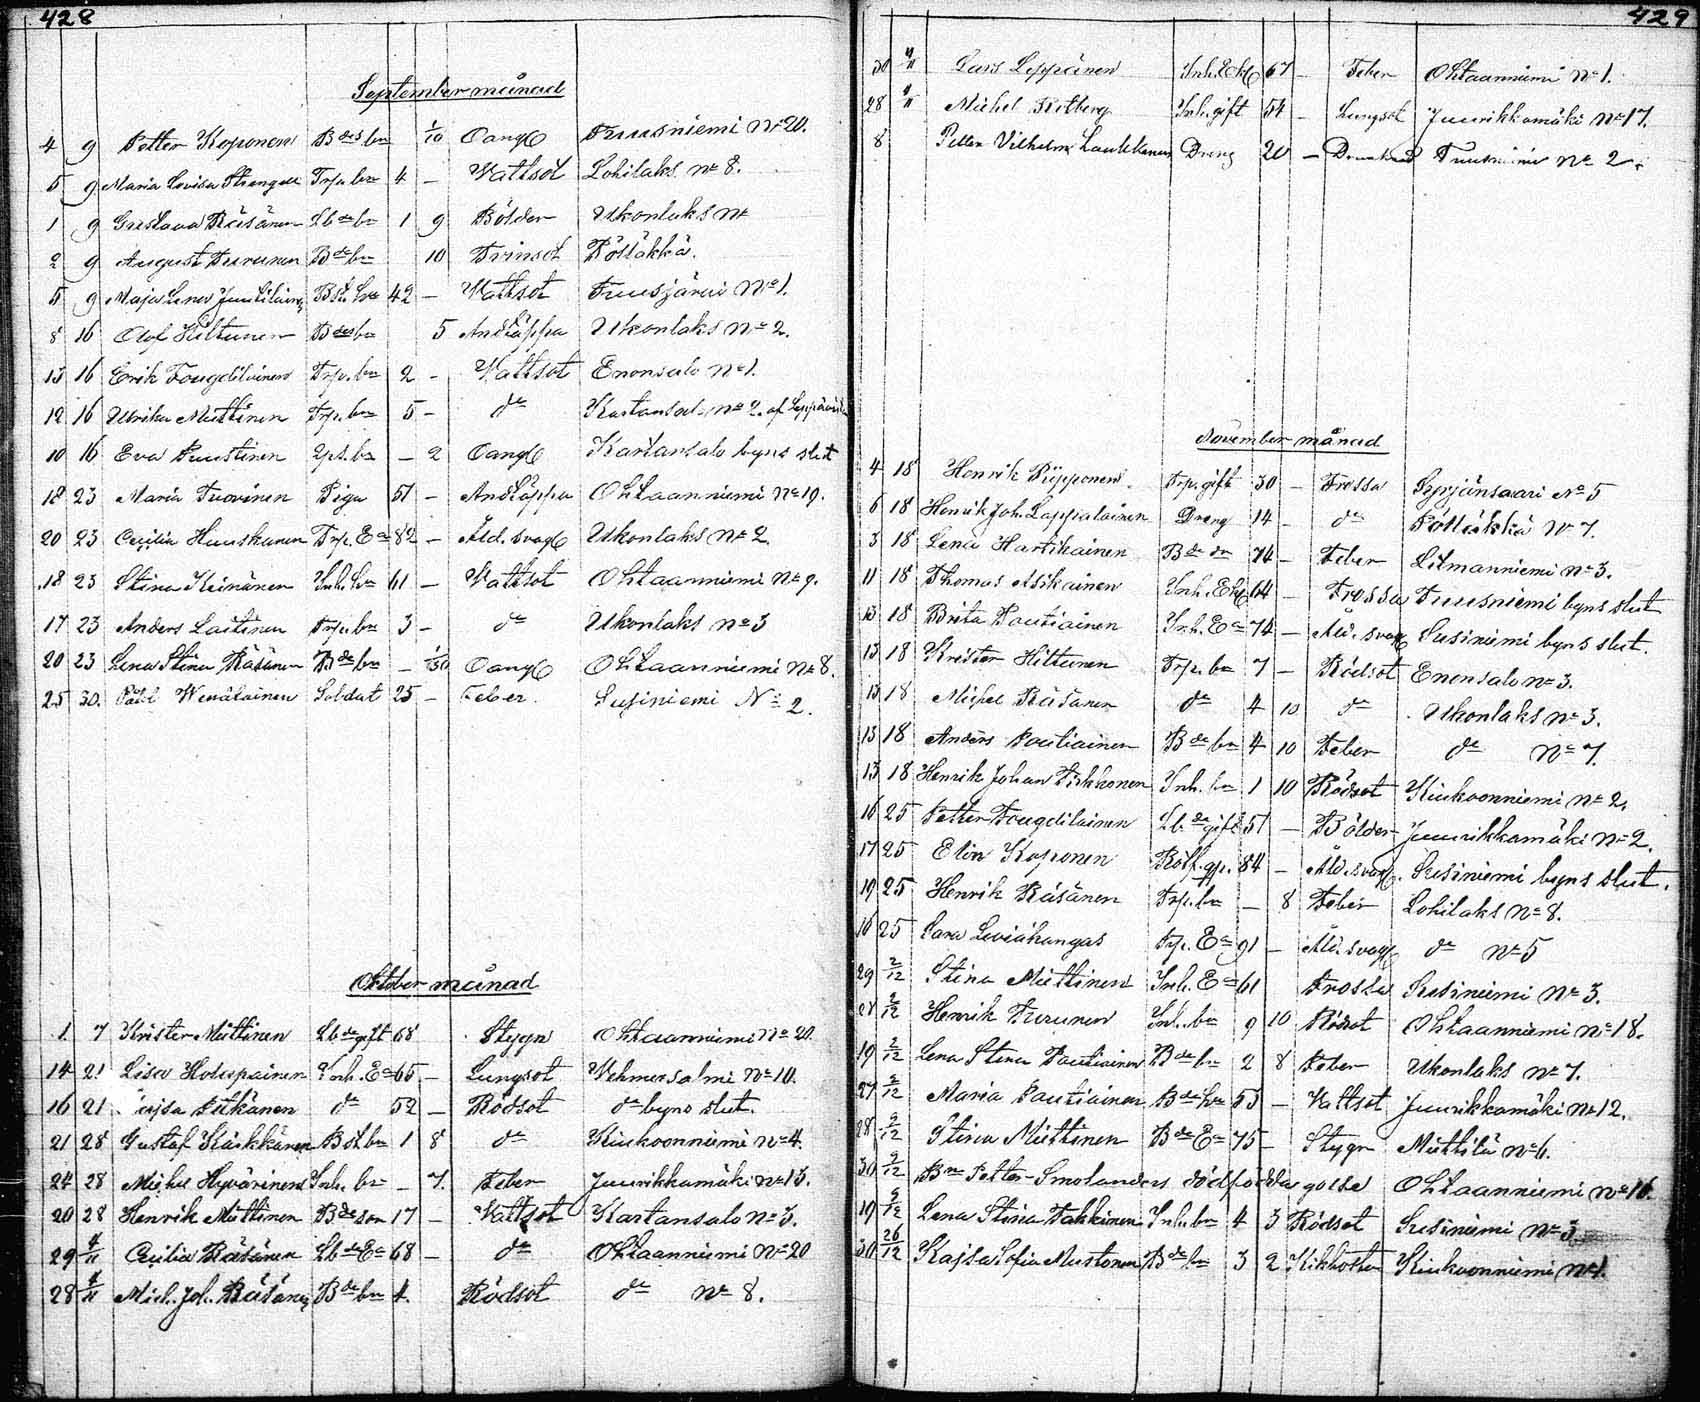 428
September månad
4 9 Petter Koponen Bdes bn 1/10 Oangf Tuusniemi No 20.
5 9 Maria Lovisa Trp. bn 4 - Wattsot Lohilaks No 8.
1 9 Gustava Räsänen Lb de bn 1 9 Bölder Ukonlaks No
2 9 August Turunen Bde bn 10 Trinsot Pölläkkä.
5 9 Maja Lena Juutilainen 42 - Wattsot Tuusjärvi No 1.
8 16 Olof Hiltunen Bdes bn 5 Andtäppa Ukonlaks No 2.
13 16 Erik Fougdilainen Trp. bn 2 - Wattsot Enonsalo No 1.
12 16 Ulrika Miettinen Trp. bn 5 - do Kartansalo No 2. af
10 16 Eva Puustinen bn - 2 Oangf Kartansalo byns slut
18 23 Maria Tuovinen Piga 51 - Andtäppa Ohtaanniemi No 19.
20 23 Cecilia Huuskunen Trp. Ea 82 - Åld. svagh Ukonlaks No 2.
18 23 Stina Keinänen Inh. hu 61 - Wattsot Ohtaanniemi No 9.
17 23 Anders Laitinen Trp. bn 3 - do Ukonlaks No 3
20 23 Lena Stina Räsänen Bde bn - 1/30 Oangf Ohtaanniemi No 8.
25 30. Påhl Wenäläinen Soldat 25 - Feber Susiniemi No 2.
Oktober månad
1 7 Krister Miettinen Lb de gift 68 Stygn Ohtaanniemi No 20.
14 21 Lisa Holopainen Inh. Ea 65 - Lungsot Wehmersalmi No 10.
16 21 Kajsa Pitkänen do 52 - Rödsot do byns slut.
21 28 Gustaf Kärkkänen bn 1 8 do Kiukoonniemi No 4.
24 28 Michel Hyvärinen Inh. bn - 7. Feber Juurikkamäki No 13.
20 28 Henrik Miettinen Bde son 17 - Wattsot Kartansalo No 3.
29 4/11 Cecilia Räsänen Lb de Ea 68 - do Ohtaanniemi No 20
28 4/11 Mich. Joh. Räsänen Bde bn 4. Rödsot do No 8.
429
30 4/11 Lars Leppänen Inh. Ekl 67 - Feber Ohtaanniemi No 1.
28 4/11 Michel Ritberg Inh. gift 54 - Lungsot Juurikkamäki No 17.
8 Petter Vilhelm Laukkanen Dreng 20 - Drunknad Tuusniemi No 2.
November månad
4 18 Henrik Ripponen Trp. gift 30 - Frossa Syrjänsaari No 5
6 18 Henrik Joh. Lappalainen Dreng 14 - do Pölläkkä No 7.
3 18 Lena Hartikainen Bde dr 74 - Feber Litmanniemi No 3.
11 18 Thomas Asikainen Inh. Ekl 64 - Frossa Tuusniemi byns slut
13 18 Brita Pautiainen Inh. Ea 74 - Åld. svagh Susiniemi byns slut.
13 18 Krister Hiltunen Trp. bn 7 - Rödsot Enonsalo No 3.
13 18 Michel Räsänen do 4 10 do Ukonlaks No 3.
13 18 Anders Pautiainen Bde bn 4 10 Feber do No 7.
13 18 Henrik Johan Pirhonen Inh. bn 1 10 Rödsot Kiukoonniemi No 2.
16 25 Petter Fougdilainen Lb. de gift 57 - Bölder Juurikkamäki No 2.
17 25 Elin Koponen 84 - Åld. svagh. Susiniemi byns slut.
19 25 Henrik Räsänen Trp. bn - 8 Feber Lohilaks No 8.
16 25 Sara Leviäkangas Trp. Ea 91 - Åld. svagh do No 5
29 2/12 Stina Miettinen Inh. Ea 61 Frossa Susiniemi No 3.
21 2/12 Henrik Turunen Inh. bn 9 10 Rödsot Ohtaanniemi No 18.
19 2/12 Lena Stina Pautiainen Bde bn 2 8 Feber Ukonlaks No 7.
27 2/12 Maria Pautiainen Bde hu 55 - Wattsot Juurikkamäki No 12.
28 9/12 Stina Miettinen Bde Ea 75 - Stygn Miettilä No 6.
30 9/12 Bn Petter Smolanders dödfödda gosse Ohtaanniemi No 16.
19 9/12 Lena Stina Takkinen Inh. bn 4 3 Rödsot Susiniemi No 3
30 26/12 Kajsa Sofia Mustonen Bde bn 3 2 Kikhosta Kiukoonniemi No 1.